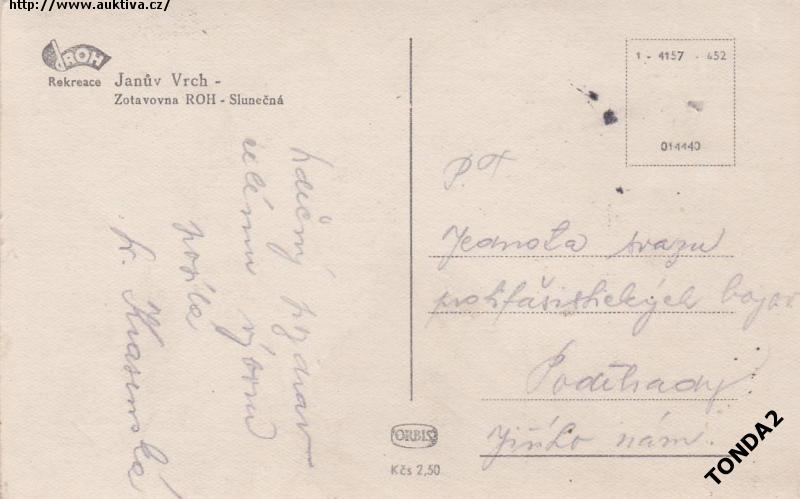 http://www.auktiva.cz/
ROH
Rekreace
Janův Vrch -
Zotavovna ROH - Slunečná
srdečný pozdrav
celému výboru
posílá
fr. Krasenská
1 - 4157 - 652
014440
P. T
Jednota svazu
protifašistických bojov
Poděbrady
Jiřího nám.
ORBIS
Kčs 2,50
TONDA2